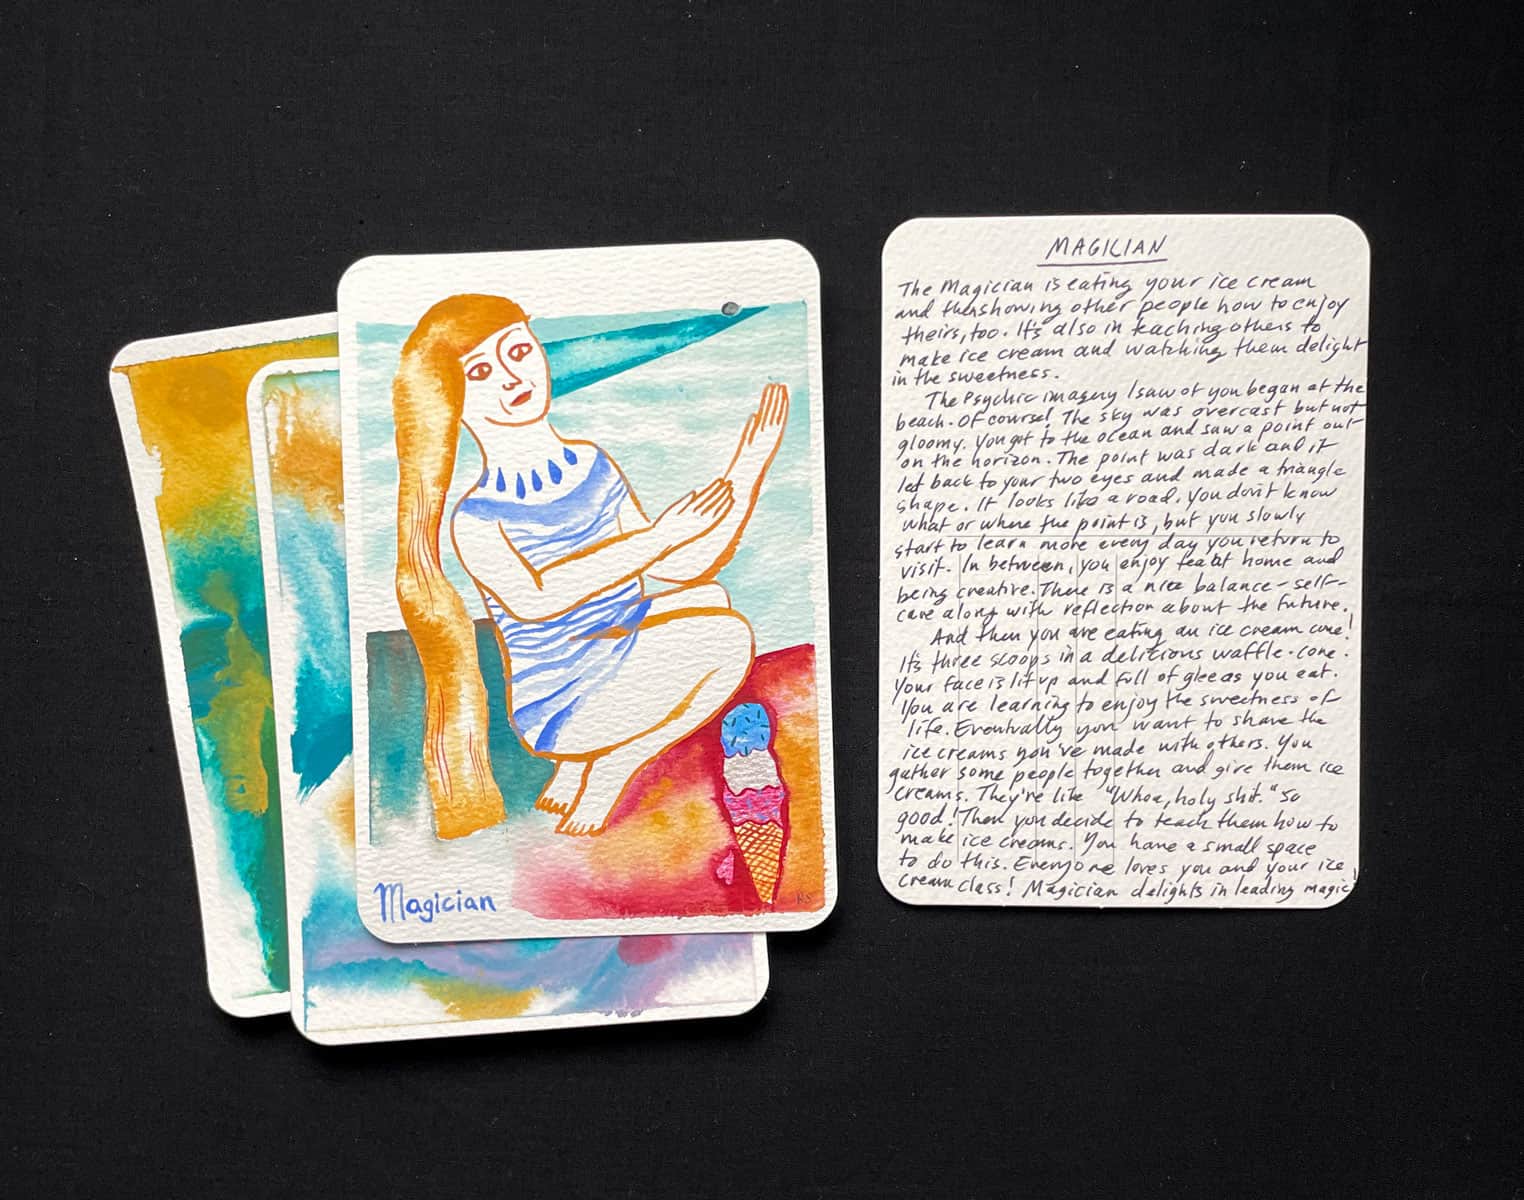 Magician
RS
MAGICIAN
The Magician is eating your ice cream
and then showing other people how to enjoy
theirs, too. It's also in teaching others to
make ice cream and watching them delight
in the sweetness.
The Psychic imagery I saw of you began at the
beach. Of course! The sky was overcast but not
gloomy. You got to the ocean and saw a point out
on the horizon. The point was dark and it
led back to your two eyes and made a triangle
shape. It looks like a road. You don't know
what or where the point is, but you slowly
start to learn more every day you return to
visit. In between, you enjoy tea at home and
being creative. There is a nice balance - self-
care along with reflection about the future.
And then you are eating an ice cream cone!
It's three scoops in a delicious waffle-cone.
Your face is lit up and full of glee as you eat.
You are learning to enjoy the sweetness of
life. Eventually you want to share the
ice creams you've made with others. You
gather some people together and give them ice
creams. They're like "Whoa, holy shit." So
good! Then you decide to teach them how to
make ice creams. You have a small space
to do this. Everyone loves you and your ice
cream class! Magician delights in leading magic!